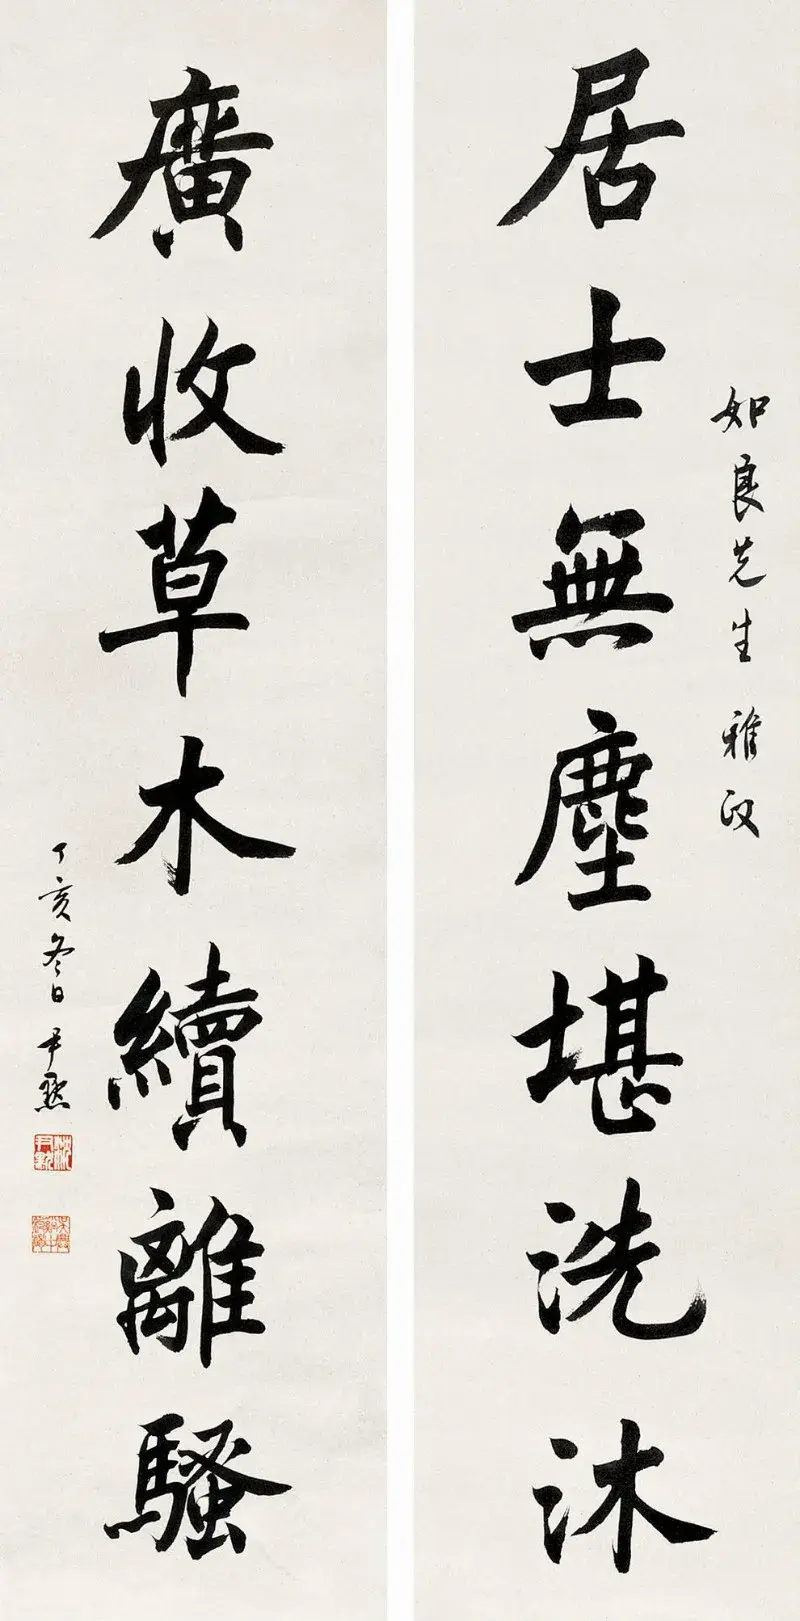 如良先生雅政
居士無塵堪洗沐
廣收草木續離騷
丁亥冬日尹默
沈尹默